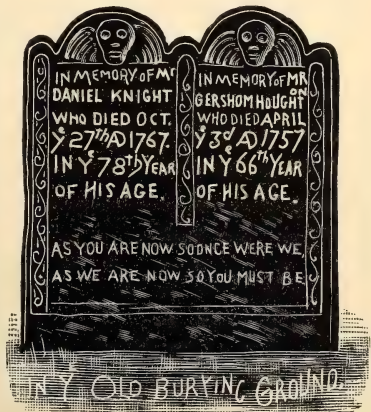 IN MEMORY OF Mr
DANIEL KNIGHT
WHO DIED OCT.
Ye 27th AD 1767.
IN Ye 78th YEAR
OF HIS AGE.
IN MEMORY OF MR
GERSHOM HOUGHTON
WHO DIED APRIL
Ye 3d AD 1757
IN Ye 66th YEAR
OF HIS AGE.
AS YOU ARE NOW SO ONCE WERE WE,
AS WE ARE NOW SO YOU MUST BE
IN Ye OLD BURYING GROUND.